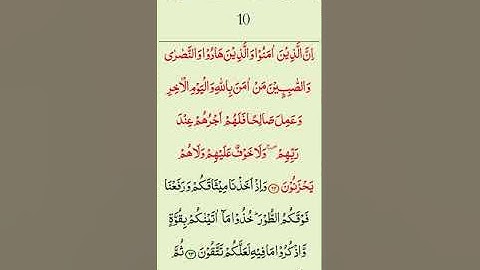 10
اِنَّ الَّذِيْنَ اٰمَنُوْا وَالَّذِيْنَ هَادُوْا وَالنَّصٰرٰى
وَالصّٰبِـِٕيْنَ مَنْ اٰمَنَ بِاللّٰهِ وَالْيَوْمِ الْاٰخِرِ
وَعَمِلَ صَالِحًا فَلَهُمْ اَجْرُهُمْ عِنْدَ
رَبِّهِمْ ۚ وَلَا خَوْفٌ عَلَيْهِمْ وَلَا هُمْ
يَحْزَنُوْنَ ﴿۶۲﴾ وَاِذْ اَخَذْنَا مِيْثَاقَكُمْ وَرَفَعْنَا
فَوْقَكُمُ الطُّوْرَ ؕ خُذُوْا مَاۤ اٰتَيْنٰكُمْ بِقُوَّةٍ
وَّاذْكُرُوْا مَا فِيْهِ لَعَلَّكُمْ تَتَّقُوْنَ ﴿۶۳﴾ ثُمَّ